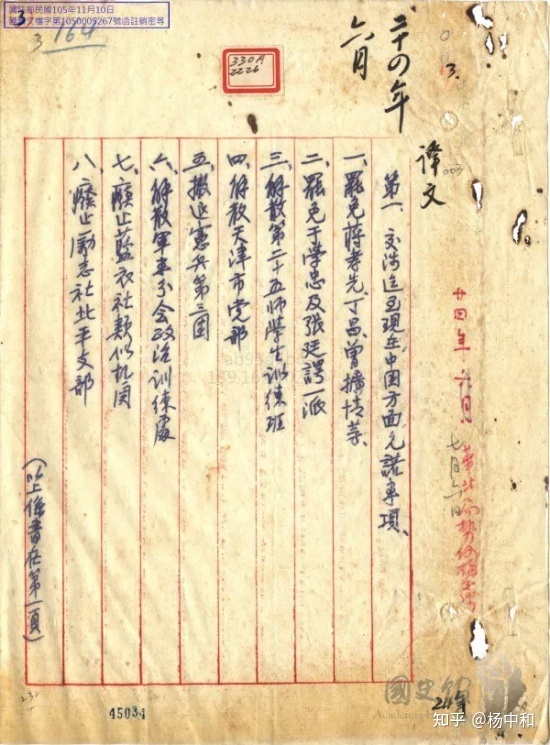 國防部民國105年11月10日
國
文檔字第1050005267號函註銷密等
3
3
164
330A
2226
二十四年
六月
3.
譯文
003
廿四年六月
七月六日
第一、交涉迄至現在中国方面允諾事項、
一、罷免蔣孝先、丁昌、曾擴情等、
二、罷免于学忠及張廷諤一派
三、解散第二十五师学生训练班
四、解散天津市党部
五、撤退憲兵第三団
六、解散軍事分会政治訓練處
七、廢止藍衣社類似机関
八、廢止勵志社北平支部
(以上係書在第一頁)
45034
國史館
Academia
知乎 @杨中和